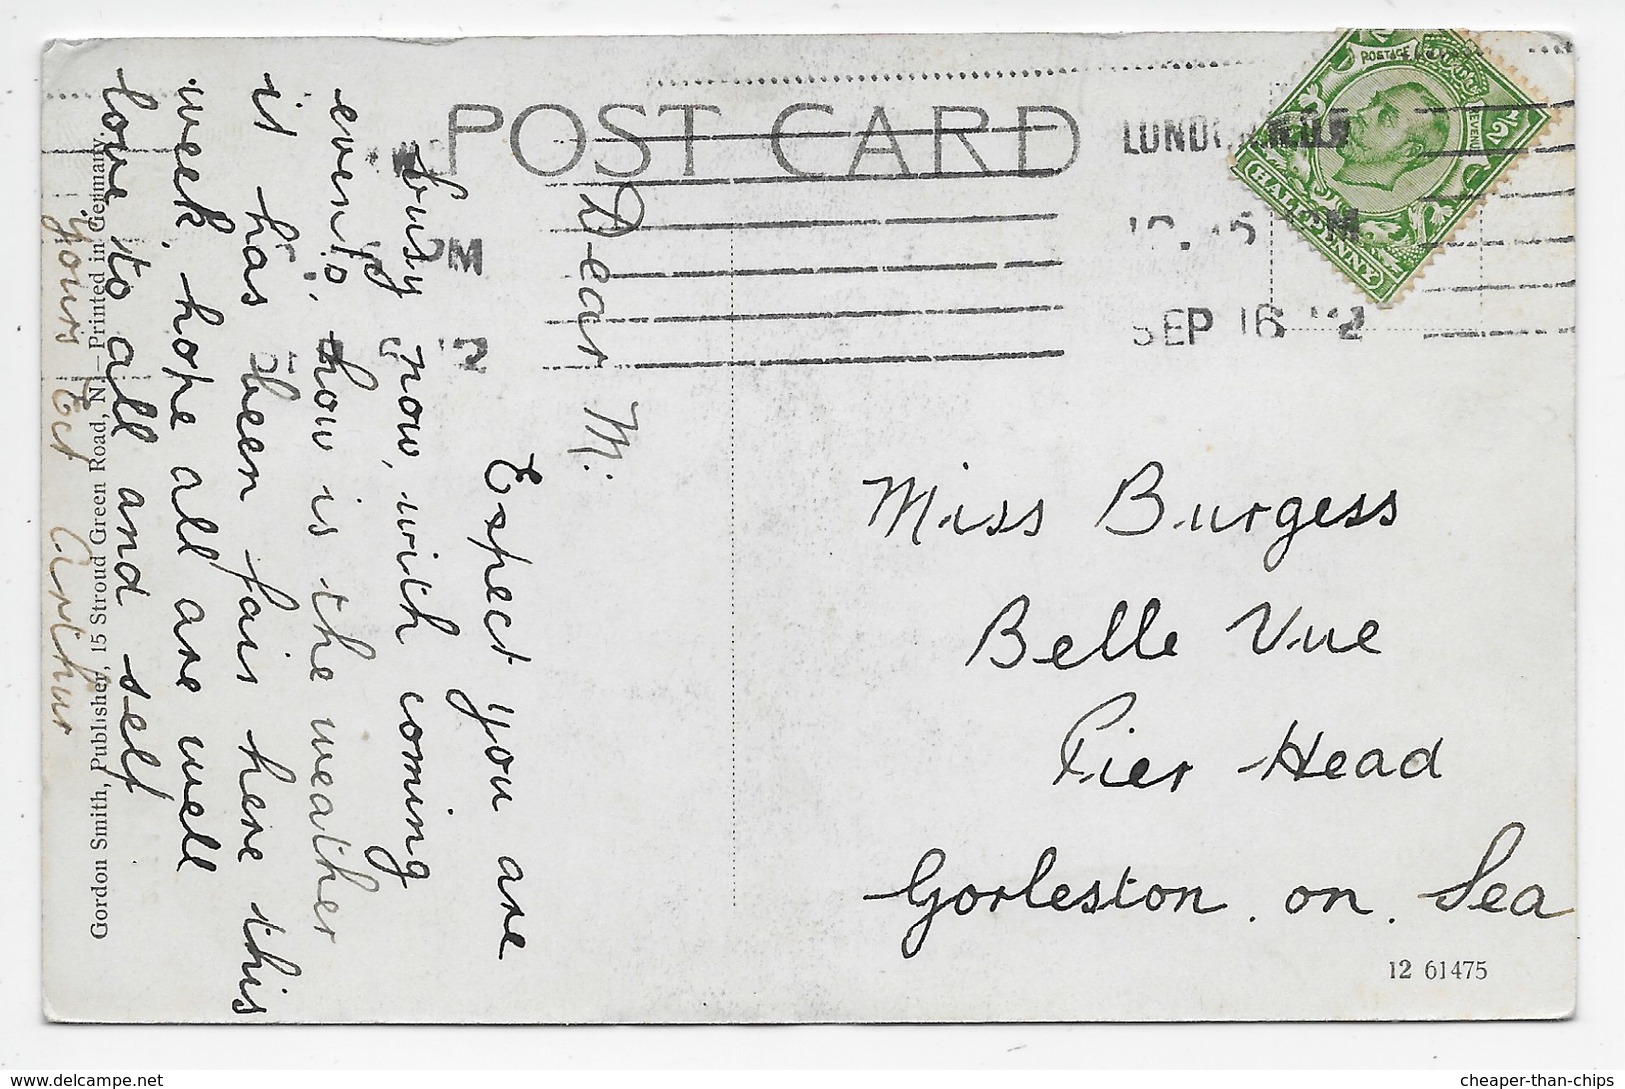 POST CARD
SEP 16 12
PM
POSTAGE
REVENUE
HALFPENNY
Dear M.
Expect you are
busy now, with coming
events, how is the weather
it has been fair here this
week, hope all are well
love to all and self
yours Ect Arthur
Miss Burgess
Belle Vue
Pier Head
Gorleston. on. Sea
12 61475
Gordon Smith, Publisher, 15 Stroud Green Road, N.—Printed in Germany.
delcampe.net
cheaper-than-chips